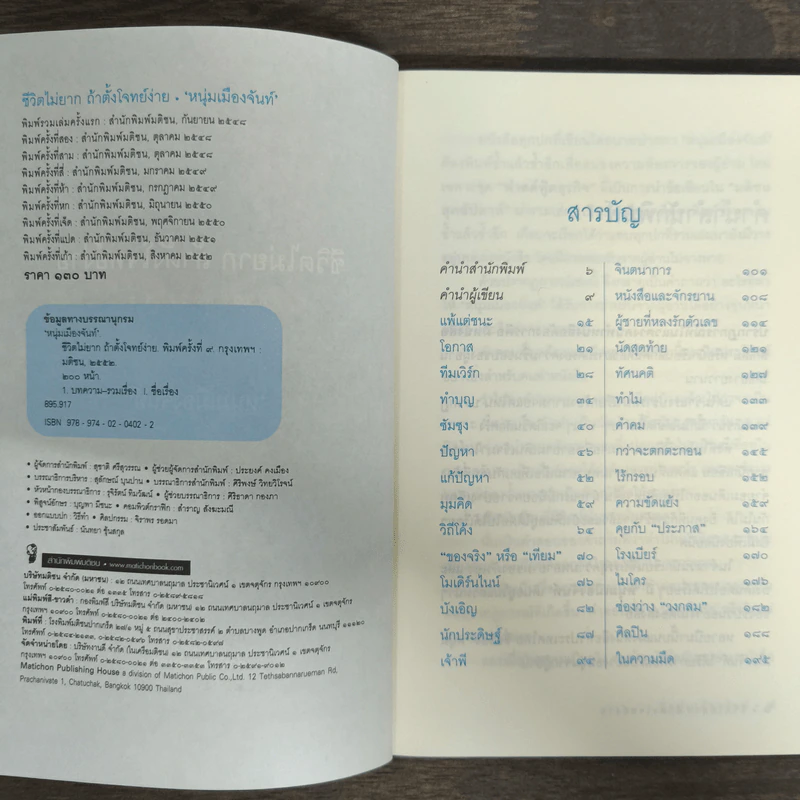 ชีวิตไม่ยาก ถ้าตั้งโจทย์ง่าย • 'หนุ่มเมืองจันท์'
พิมพ์รวมเล่มครั้งแรก : สำนักพิมพ์มติชน, กันยายน ๒๕๔๘
พิมพ์ครั้งที่สอง : สำนักพิมพ์มติชน, ตุลาคม ๒๕๔๘
พิมพ์ครั้งที่สาม : สำนักพิมพ์มติชน, ตุลาคม ๒๕๔๘
พิมพ์ครั้งที่สี่ : สำนักพิมพ์มติชน, มกราคม ๒๕๔๙
พิมพ์ครั้งที่ห้า : สำนักพิมพ์มติชน, กรกฎาคม ๒๕๔๙
พิมพ์ครั้งที่หก : สำนักพิมพ์มติชน, มิถุนายน ๒๕๕๐
พิมพ์ครั้งที่เจ็ด : สำนักพิมพ์มติชน, พฤศจิกายน ๒๕๕๐
พิมพ์ครั้งที่แปด : สำนักพิมพ์มติชน, ธันวาคม ๒๕๕๑
พิมพ์ครั้งที่เก้า : สำนักพิมพ์มติชน, สิงหาคม ๒๕๕๒
ราคา ๑๓๐ บาท
ข้อมูลทางบรรณานุกรม
'หนุ่มเมืองจันท์'.
ชีวิตไม่ยาก ถ้าตั้งโจทย์ง่าย. พิมพ์ครั้งที่ ๙. กรุงเทพฯ :
มติชน, ๒๕๕๒.
๒๐๐ หน้า.
1. บทความ-รวมเรื่อง I. ชื่อเรื่อง
895.917
ISBN 978 - 974 - 02 - 0402 - 2
• ผู้จัดการสำนักพิมพ์ : สุชาติ ศรีสุวรรณ • ผู้ช่วยผู้จัดการสำนักพิมพ์ : ประยงค์ คงเมือง
• บรรณาธิการบริหาร : สุลักษณ์ บุนปาน • บรรณาธิการสำนักพิมพ์ : ศิริพงษ์ วิทยวิโรจน์
• หัวหน้ากองบรรณาธิการ : รุจิรัตน์ ทิมวัฒน์ • ผู้ช่วยบรรณาธิการ : ศิริธาดา กองภา
• พิสูจน์อักษร : บุญพา มีชนะ • คอมพิวเตอร์กราฟิก : สำราญ สังมะมณี
• ออกแบบปก : วิธีทำ • ศิลปกรรม : จิราพร
• ประชาสัมพันธ์ : นันทยา
สำนักพิมพ์มติชน • www.matichonbook.com
บริษัทมติชน จำกัด (มหาชน) : ๑๒ ถนนเทศบาลนฤมาล ประชานิเวศน์ ๑ เขตจตุจักร กรุงเทพฯ ๑๐๙๐๐
โทรศัพท์ ๐-๒๕๘๐-๐๐๒๑ ต่อ โทรสาร
แม่พิมพ์สี-ขาวดำ : กองพิมพ์สี บริษัทมติชน จำกัด (มหาชน) ๑๒ ถนนเทศบาลนฤมาล ประชานิเวศน์ ๑ เขตจตุจักร
กรุงเทพฯ ๑๐๙๐๐ โทรศัพท์ ๐-๒๕๘๐-๐๐๒๑ ต่อ
พิมพ์ที่ : โรงพิมพ์มติชนปากเกร็ด ๒๗/๑ หมู่ ๕ ถนนสุขาประชาสรรค์ ๒ ตำบลบางพูด อำเภอปากเกร็ด นนทบุรี ๑๑๑๒๐
โทรศัพท์ โทรสาร
จัดจำหน่ายโดย : บริษัทงานดี จำกัด (ในเครือมติชน) ๑๒ ถนนเทศบาลนฤมาล ประชานิเวศน์ ๑ เขตจตุจักร
กรุงเทพฯ ๑๐๙๐๐ โทรศัพท์ ๐-๒๕๘๐-๐๐๒๑ ต่อ ๓๓๕๐-๓๓๕๓ โทรสาร ๐-๒๕๙๑-๙๐๑๒
Matichon Publishing House a division of Matichon Public Co.,Ltd. 12 Tethsabannarueman Rd,
Prachanivate 1, Chatuchak, Bangkok 10900 Thailand
สารบัญ
คำนำสำนักพิมพ์ ๖
คำนำผู้เขียน ๙
แพ้แต่ชนะ ๑๕
โอกาส ๒๑
ทีมเวิร์ก ๒๘
ทำบุญ ๓๔
ซัมซุง ๔๐
ปัญหา ๔๖
แก้ปัญหา ๕๒
มุมคิด ๕๙
วิถีโค้ง ๖๔
"ของจริง" หรือ "เทียม" ๗๐
โมเดิร์นไนน์ ๗๖
บังเอิญ ๘๒
นักประดิษฐ์ ๘๗
เจ้าพี่ ๙๔
จินตนาการ ๑๐๑
หนังสือและจักรยาน ๑๐๘
ผู้ชายที่หลงรักตัวเลข ๑๑๔
นัดสุดท้าย ๑๒๑
ทัศนคติ ๑๒๗
ทำไม ๑๓๓
คำคม ๑๓๙
กว่าจะตกตะกอน ๑๔๕
ไร้กรอบ ๑๕๒
ความขัดแย้ง ๑๕๙
คุยกับ "ประภาส" ๑๖๔
โรงเบียร์ ๑๗๐
ไมโคร ๑๗๖
ช่องว่าง "วงกลม" ๑๘๒
ศิลปิน ๑๘๘
ในความมืด ๑๙๕